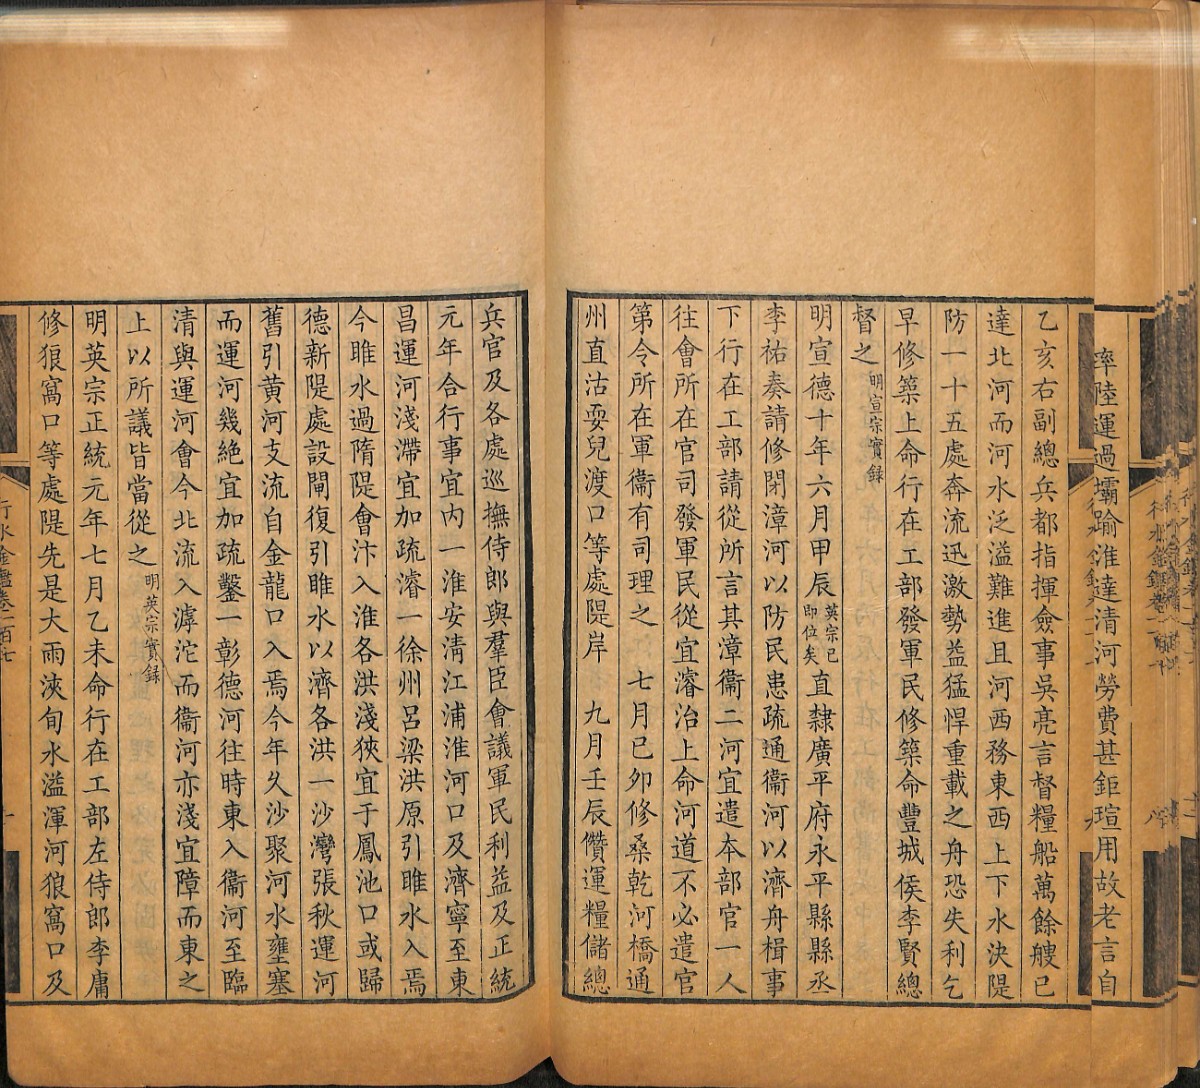 率陸運過壩踰淮達清河勞費甚鉅瑄用故老言自
乙亥右副總兵都指揮僉事吳亮言督糧船萬餘艘已
達北河而河水泛溢難進且河西務東西上下水決隄
防一十五處奔流迅激勢益猛悍重載之舟恐失利乞
早修築上命行在工部發軍民修築命豐城侯李賢總
督之明宣宗實錄
明宣德十年六月甲辰英宗已即位矣直隸廣平府永平縣縣丞
李祐奏請修閉漳河以防民患疏通衞河以濟舟楫事
下行在工部請從所言其漳衞二河宜遣本部官一人
往會所在官司發軍民從宜濬治上命河道不必遣官
第令所在軍衞有司理之 七月已卯修桑乾河橋通
州直沽耍兒渡口等處隄岸 九月壬辰儹運糧儲總
兵官及各處巡撫侍郎與羣臣會議軍民利益及正統
元年合行事宜內一淮安清江浦淮河口及濟寧至東
昌運河淺滯宜加疏濬一徐州呂梁洪原引睢水入焉
今睢水過隋隄會汴入淮各洪淺狹宜于鳳池口或歸
德新隄處設閘復引睢水以濟各洪一沙灣張秋運河
舊引黃河支流自金龍口入焉今年久沙聚河水壅塞
而運河幾絕宜加疏鑿一彰德河往時東入衞河至臨
清與運河會今北流入滹沱而衞河亦淺宜障而東之
上以所議皆當從之明英宗實錄
明英宗正統元年七月乙未命行在工部左侍郎李庸
修狼窩口等處隄先是大雨浹旬水溢渾河狼窩口及
行水金鑑卷一百七